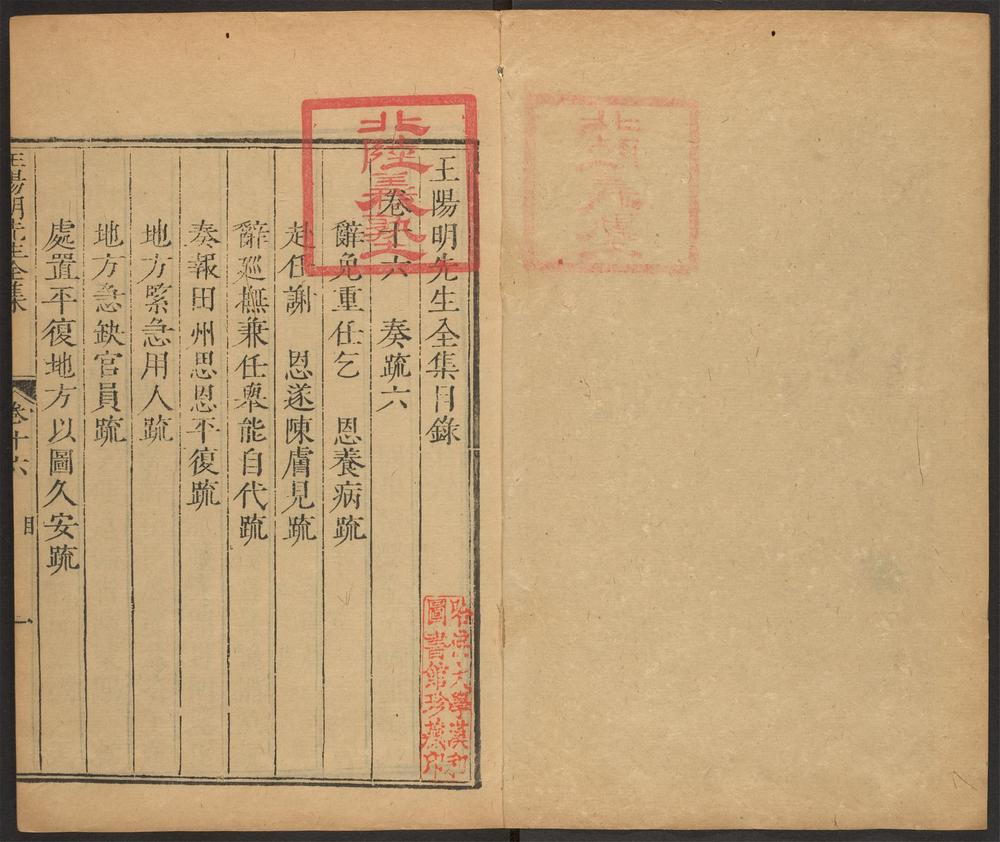 王陽明先生全集目錄
卷十六　奏疏六
辭免重任乞　恩養病疏
赴任謝　恩遂陳膚見疏
辭廵撫兼任舉能自代疏
奏報田州思恩平復疏
地方緊急用人疏
地方急缺官員疏
處置平復地方以圖久安疏
王陽明先生全集
卷十六
目
一
北陸義塾
哈佛大學漢和
圖書館珍藏印